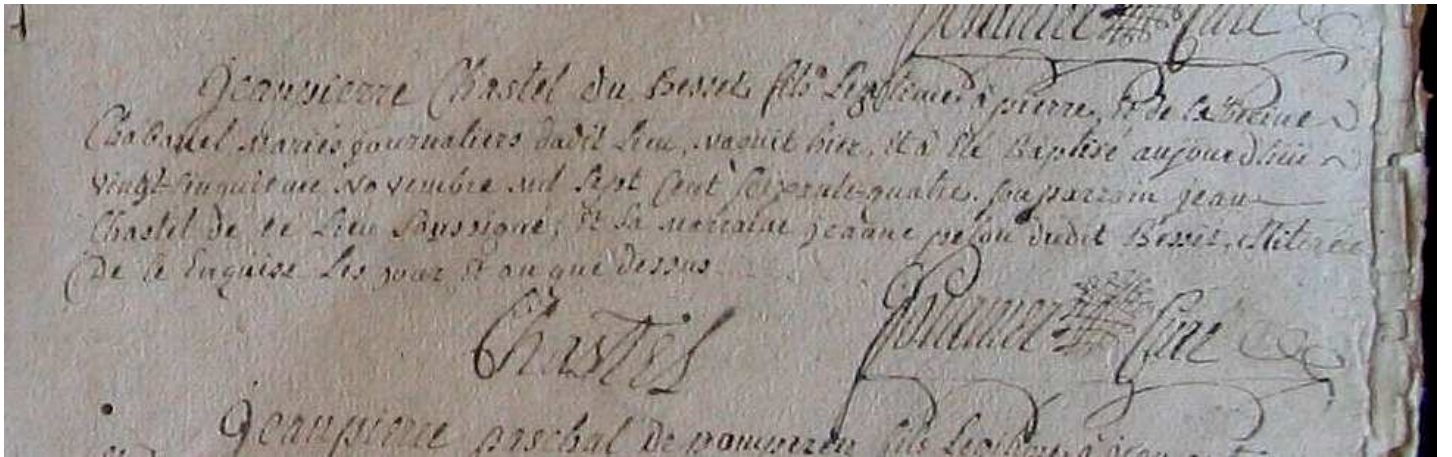 Curé
Jeanpierre Chastel du Besset, fils Legitime à pierre, et de Catherine
Chabanel mariés journaliers dudit Lieu, naquit hier, et à été Baptisé aujourdhui
vingt-cinquieme Novembre mil Sept Cent soixante-quatre. son parrain jean
Chastel de ce Lieu Soussigné, et sa marraine jeanne dudit Besset, illiterée
de ce Enquise Les jour et an que dessus
Chastel
Fournier Curé
Jeanpierre paschal de fils Legitime à jean